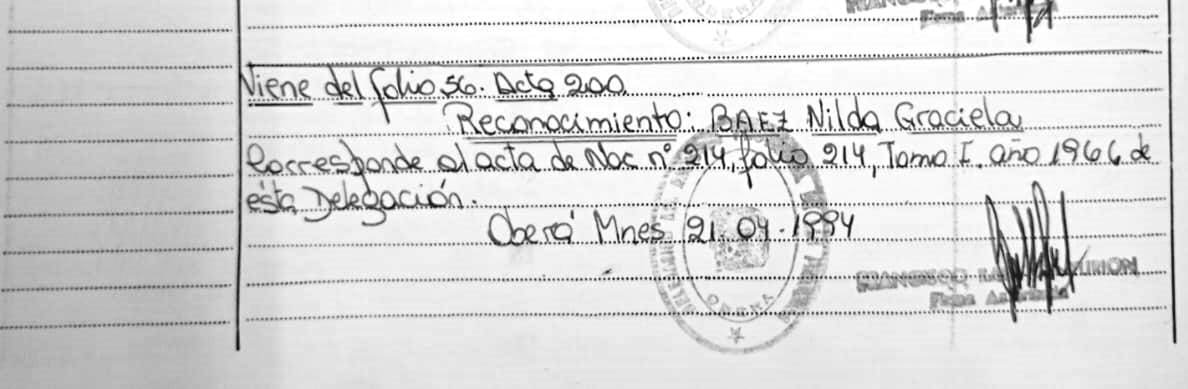 Viene del folio 56. Acta 200.
Reconocimiento: BAEZ Nilda Graciela
Corresponde al acta de Nac. nº 214, folio 214, Tomo I, año 1966 de
ésta Delegación.
Oberá Mnes 21.04.1994
FRANCISCO
Firma
OBERA